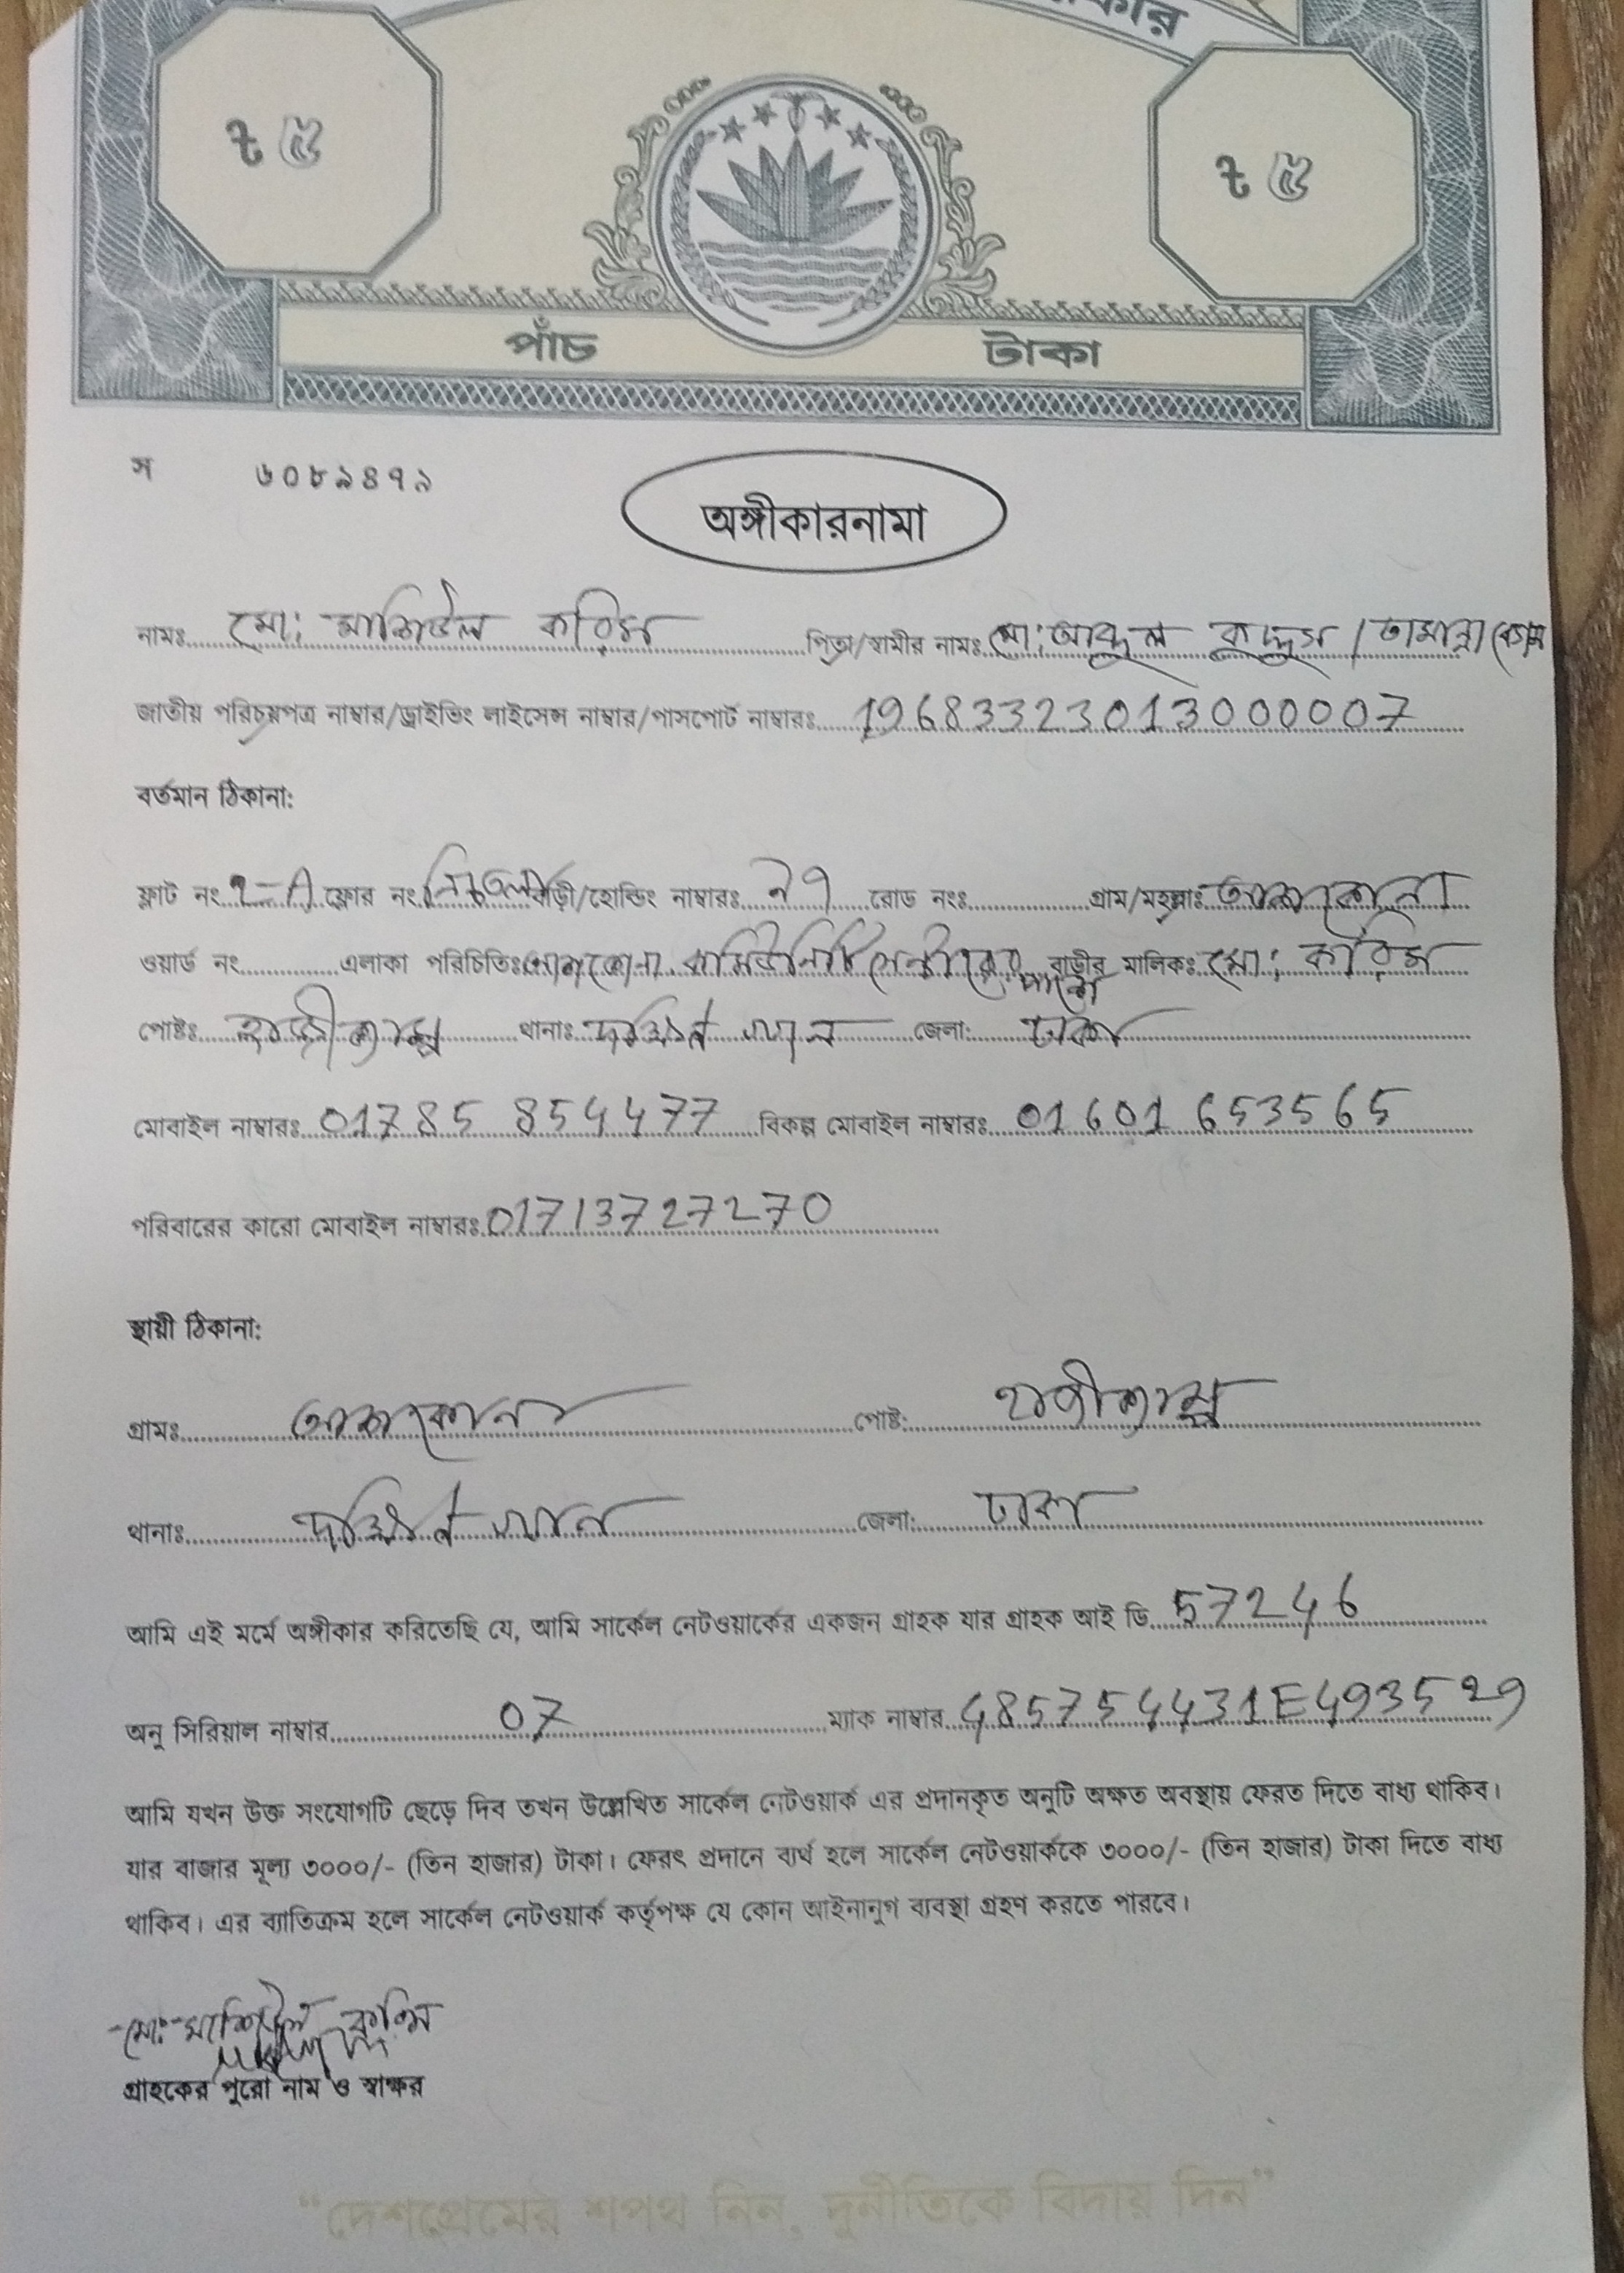 কার
৳ ৫ ৳ ৫
পাঁচ টাকা
স ৬০৮৯৪৭৯
অঙ্গীকারনামা
নামঃ মো: মাশিউল করিম পিতা/স্বামীর নামঃ মো: আব্দুল কুদ্দুস / তামান্না বেগম
জাতীয় পরিচয়পত্র নাম্বার/ড্রাইভিং লাইসেন্স নাম্বার/পাসপোর্ট নাম্বারঃ 19683323013000007
বর্তমান ঠিকানা:
ফ্লাট নং ফ্লোর নং নিচতলা বাড়ী/হোল্ডিং নাম্বারঃ রোড নংঃ গ্রাম/মহল্লাঃ আশকোনা
ওয়ার্ড নং এলাকা পরিচিতিঃ আশকোনা কমিউনিটি সেন্টারের পাশে বাড়ীর মালিকঃ মো: করিম
পোষ্টঃ হাজীক্যাম্প থানাঃ দক্ষিন খান জেলা: ঢাকা
মোবাইল নাম্বারঃ 01785 854477 বিকল্প মোবাইল নাম্বারঃ 01601 653565
পরিবারের কারো মোবাইল নাম্বারঃ 01713727270
স্থায়ী ঠিকানা:
গ্রামঃ আশকোনা পোষ্ট: হাজীক্যাম্প
থানাঃ দক্ষিন খান জেলা: ঢাকা
আমি এই মর্মে অঙ্গীকার করিতেছি যে, আমি সার্কেল নেটওয়ার্কের একজন গ্রাহক যার গ্রাহক আই ডি 57246
অনু সিরিয়াল নাম্বার 07 ম্যাক নাম্বার 485754431E493529
আমি যখন উক্ত সংযোগটি ছেড়ে দিব তখন উল্লেখিত সার্কেল নেটওয়ার্ক এর প্রদানকৃত অনুটি অক্ষত অবস্থায় ফেরত দিতে বাধ্য থাকিব।
যার বাজার মূল্য ৩০০০/- (তিন হাজার) টাকা। ফেরৎ প্রদানে ব্যর্থ হলে সার্কেল নেটওয়ার্ককে ৩০০০/- (তিন হাজার) টাকা দিতে বাধ্য
থাকিব। এর ব্যাতিক্রম হলে সার্কেল নেটওয়ার্ক কর্তৃপক্ষ যে কোন আইনানুগ ব্যবস্থা গ্রহণ করতে পারবে।
মো: মাশিউল করিম
গ্রাহকের পুরো নাম ও স্বাক্ষর
“দেশপ্রেমের শপথ নিন, দুর্নীতিকে বিদায় দিন”